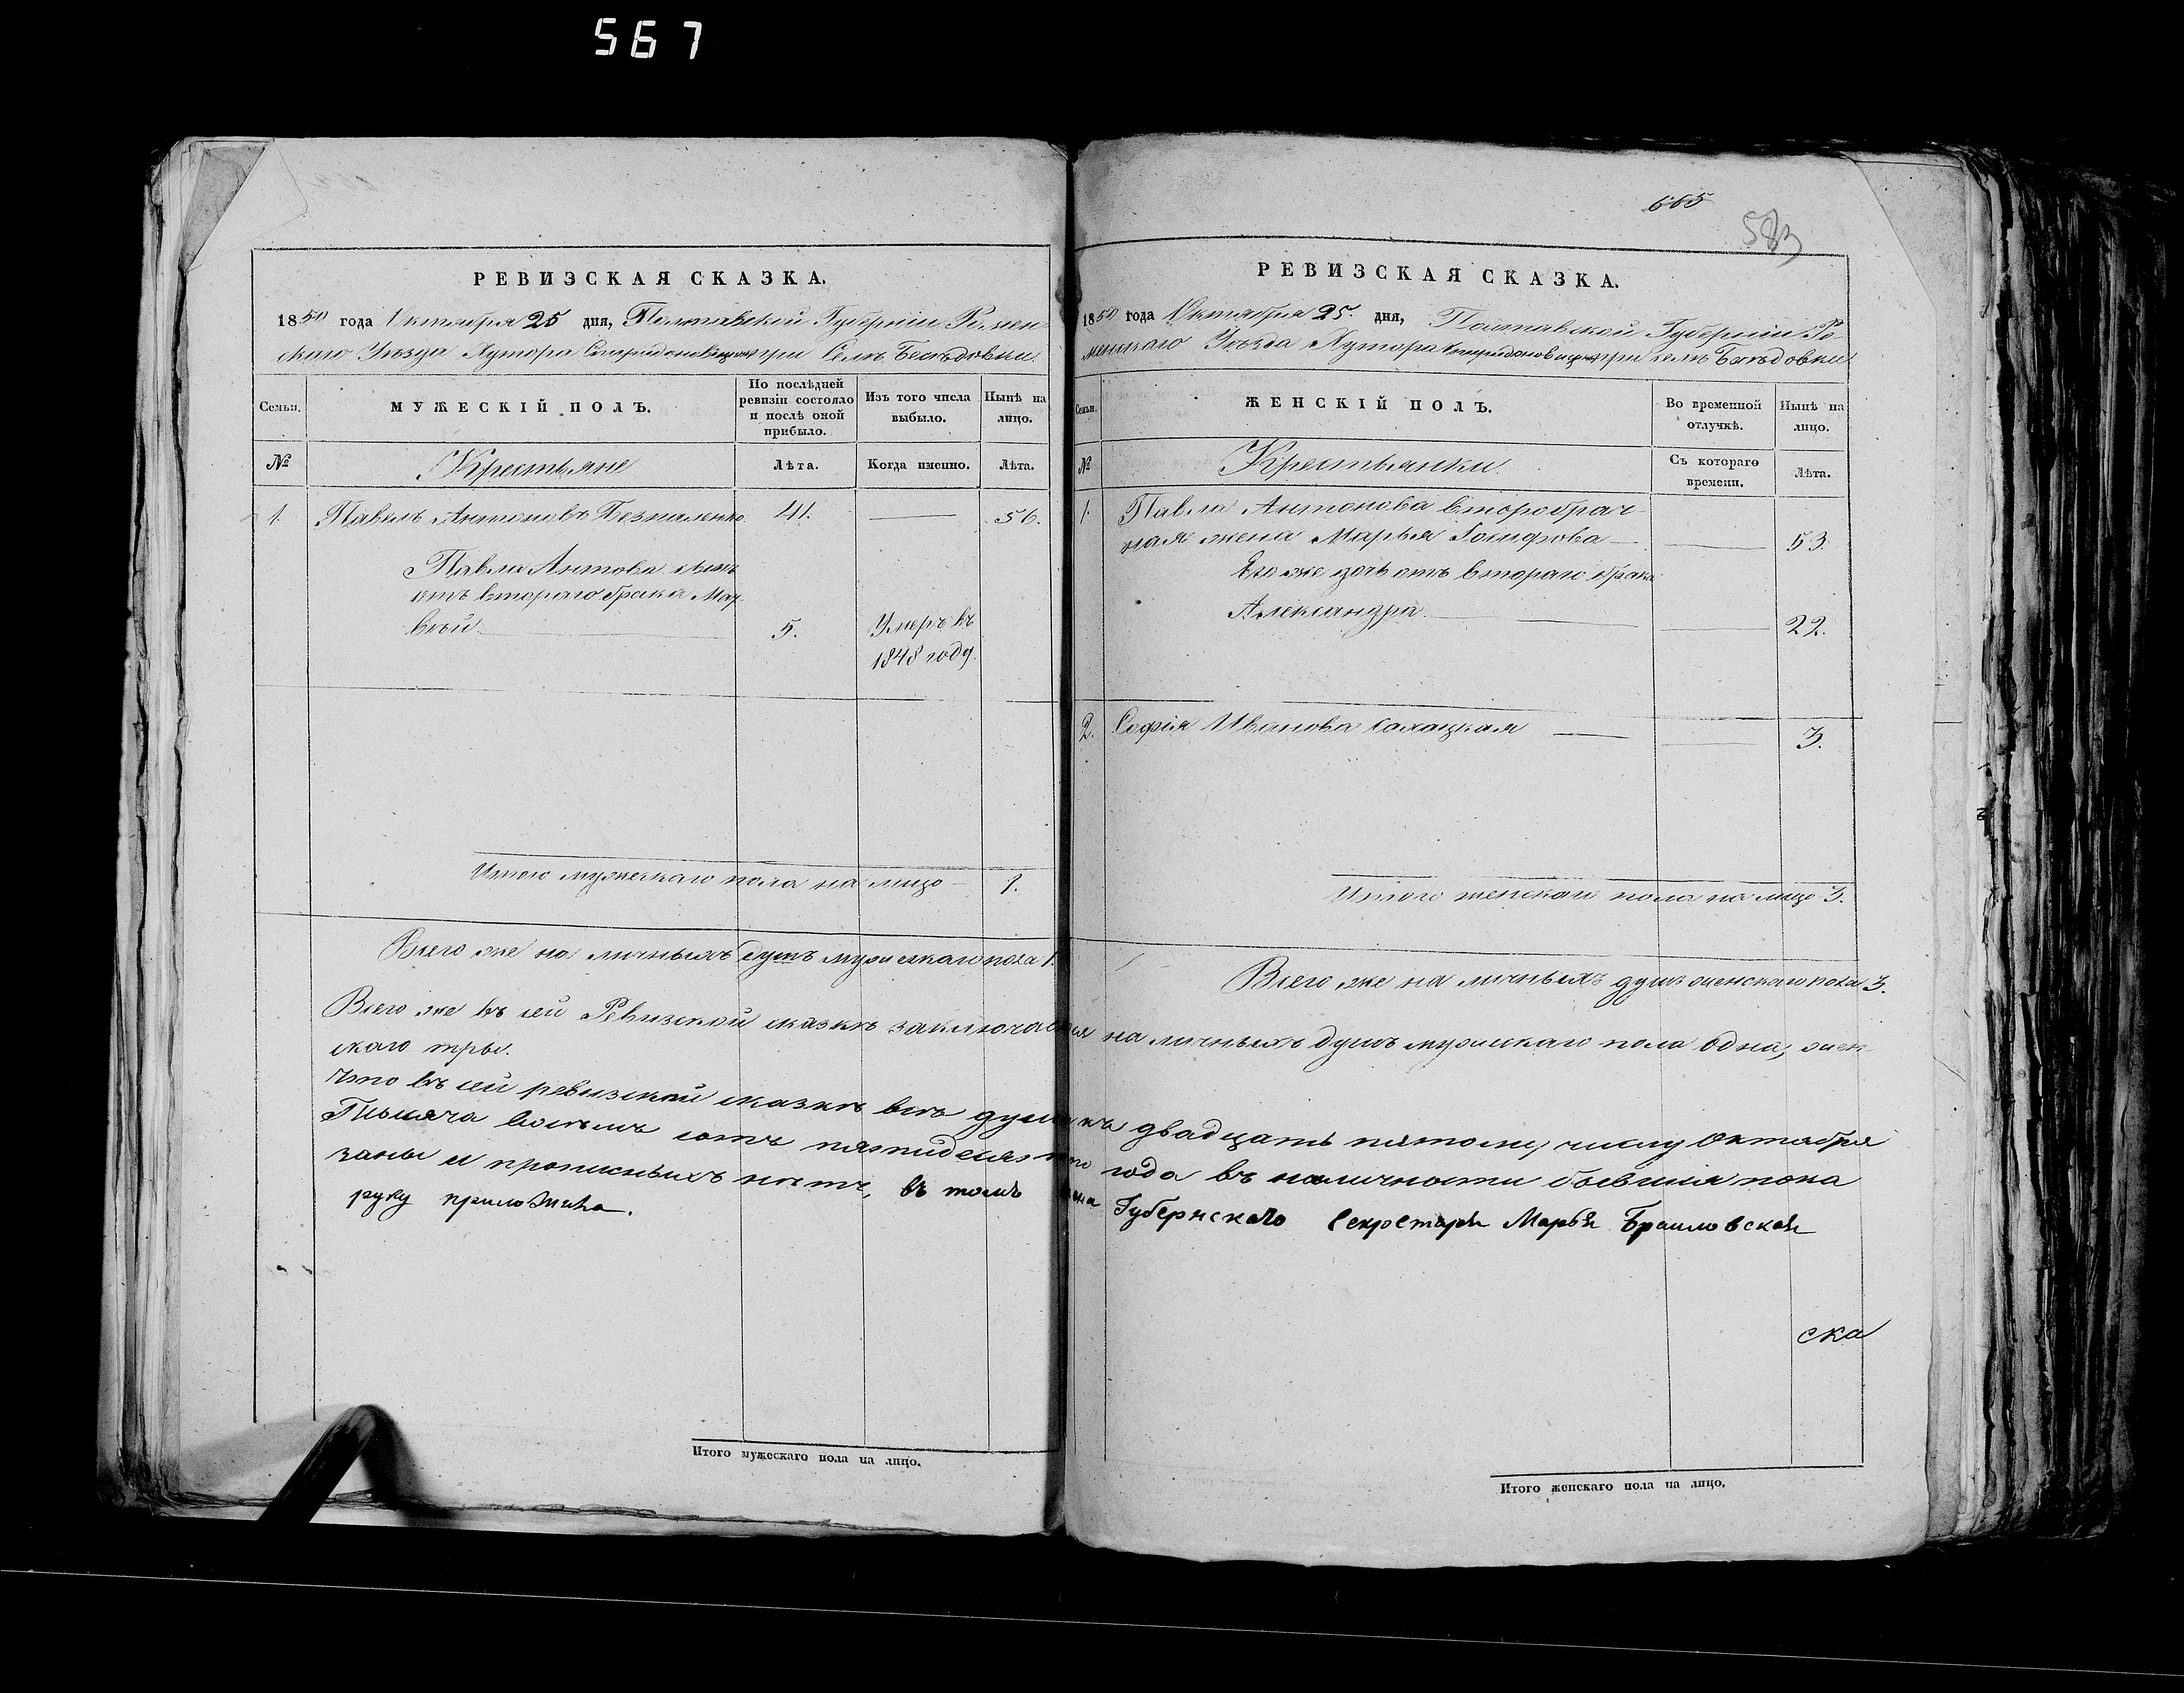 567
РЕВИЗСКАЯ СКАЗКА.
1850 года Октября 25 дня, Полтавской Губерніи Ромен-
скаго Уѣзда Хутора при Селѣ Бесѣдовки
Семьи.
МУЖЕСКІЙ ПОЛЪ.
По послѣдней ревизіи состояло и послѣ оной прибыло.
Изъ того числа выбыло.
Нынѣ на лицо.
№
Крестьяне
Лѣта.
Когда именно.
Лѣта.
1. Павелъ Антоновъ 41. 56.
Павла Антонова сынъ
отъ втораго брака Мат-
вѣй 5. Умеръ въ
1848 году.
Итого мужескаго пола на лицо 1.
Всего же на личныхъ душъ мужескаго пола 1.
665
583
РЕВИЗСКАЯ СКАЗКА.
1850 года Октября 25 дня, Полтавской Губерніи Ро-
менскаго Уѣзда Хутора при селѣ Бесѣдовки
Семьи.
ЖЕНСКІЙ ПОЛЪ.
Во временной отлучкѣ.
Нынѣ на лицо.
№
Крестьянки
Съ котораго времени.
Лѣта.
1. Павла Антонова второбрач-
ная жена Марья 53.
Его же дочь отъ втораго брака
Александра 22.
2. Софія Иванова 3.
Итого женскаго пола на лицо 3.
Всего же на личныхъ душъ женскаго пола 3.
Всего же въ сей Ревизской сказкѣ заключается на личныхъ душъ мужескаго пола одна, жен-
скаго три.
Что въ сей ревизской сказкѣ всѣ души къ двадцать пятому числу Октября
Тысяча восемь сотъ пятидесятого года въ наличности бывшія пока
заны и прописныхъ нѣтъ, въ томъ жена Губернского Секретаря Марья Браиловская
руку приложила.
ска
Итого мужескаго пола на лицо.
Итого женскаго пола на лицо.